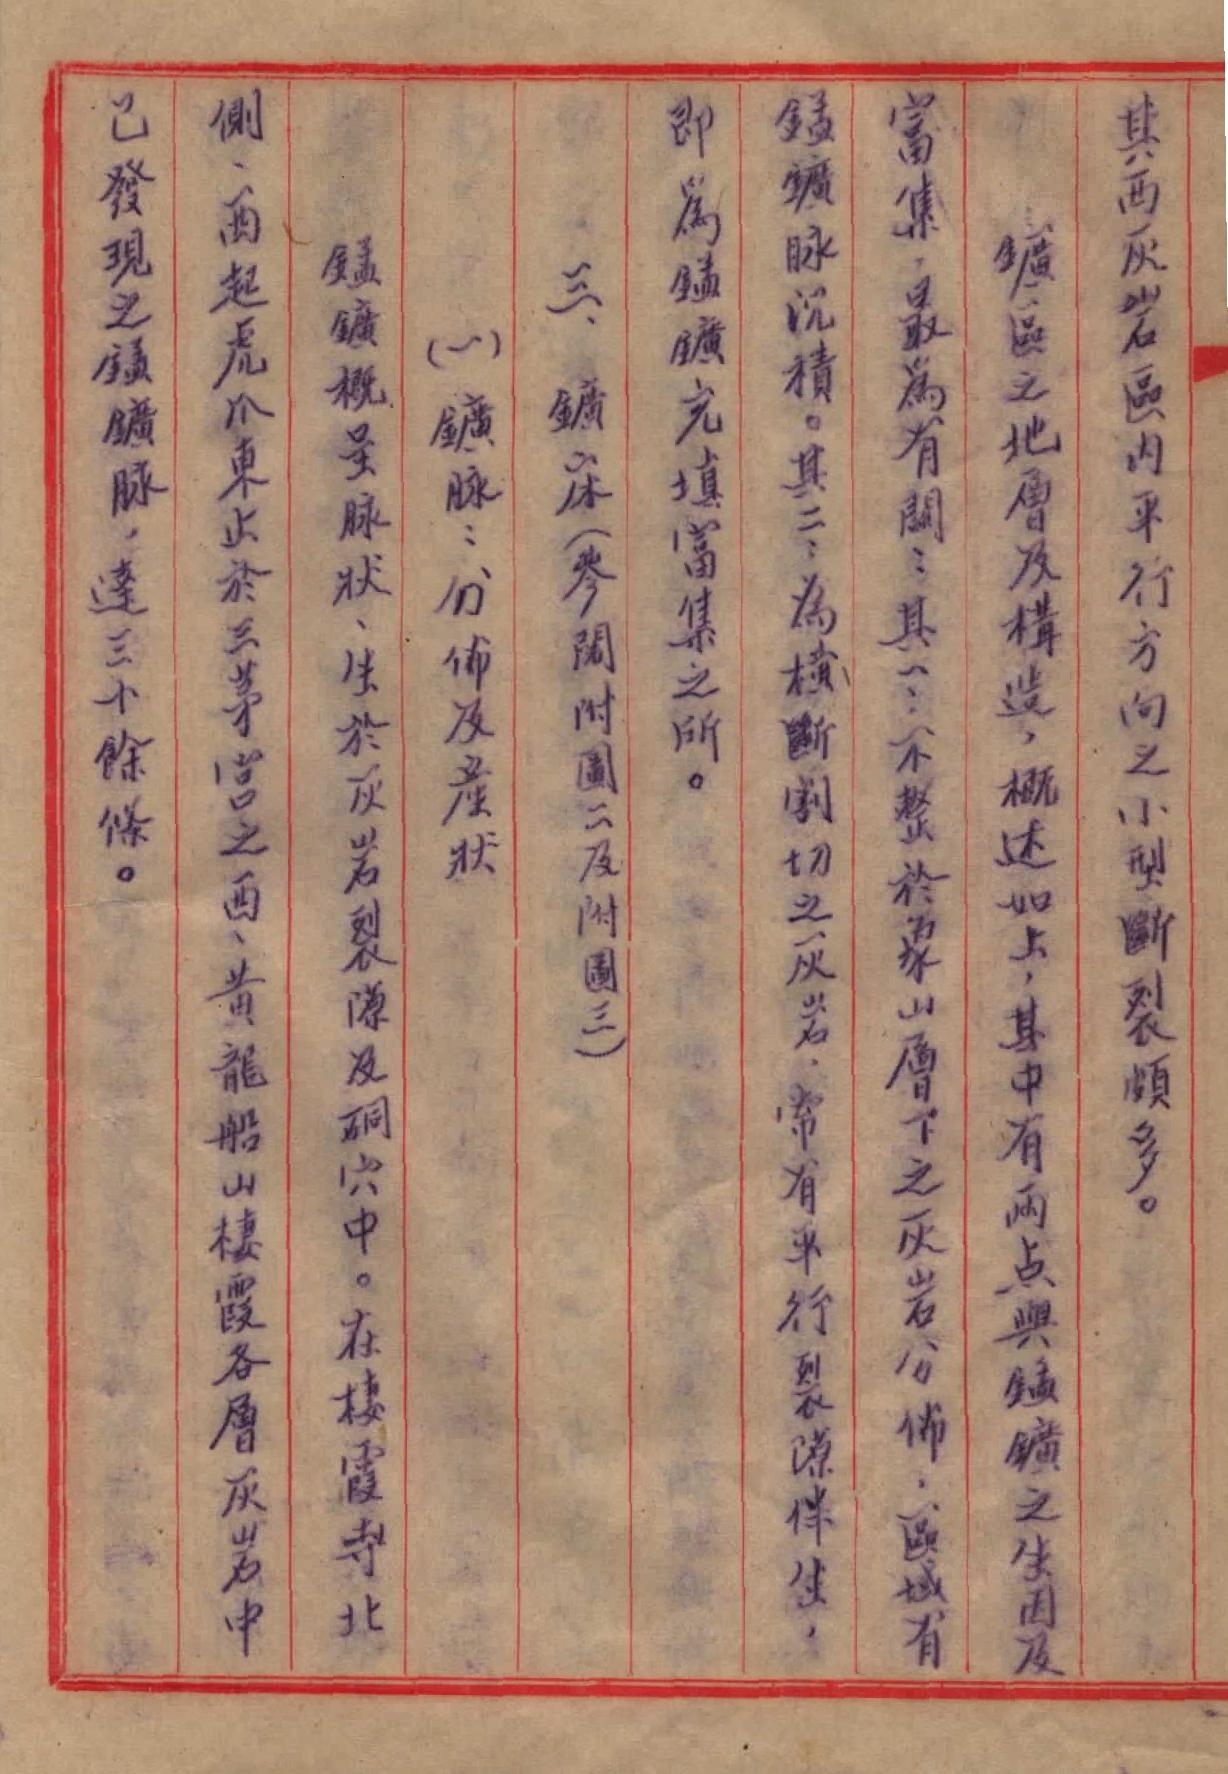 其西灰岩區内平行方向之小型斷裂頗多。
鑛區之地層及構造，概述如上，其中有兩点與錳鑛之生因及
富集，最為有關：其一：不整於象山層下之灰岩分佈，區域有
錳鑛脉沉積。其二：為橫斷割切之灰岩，常有平行裂隙伴生，
即為錳鑛充填富集之所。
三、鑛床（參閱附圖二及附圖三）
（一）鑛脉：分佈及產狀
錳鑛概呈脉狀、生於灰岩裂隙及硐穴中。在棲霞寺北
側、西起虎爪東止於三茅宮之西、黄龍船山棲霞各層灰岩中
已發現之錳鑛脉，達三十餘條。